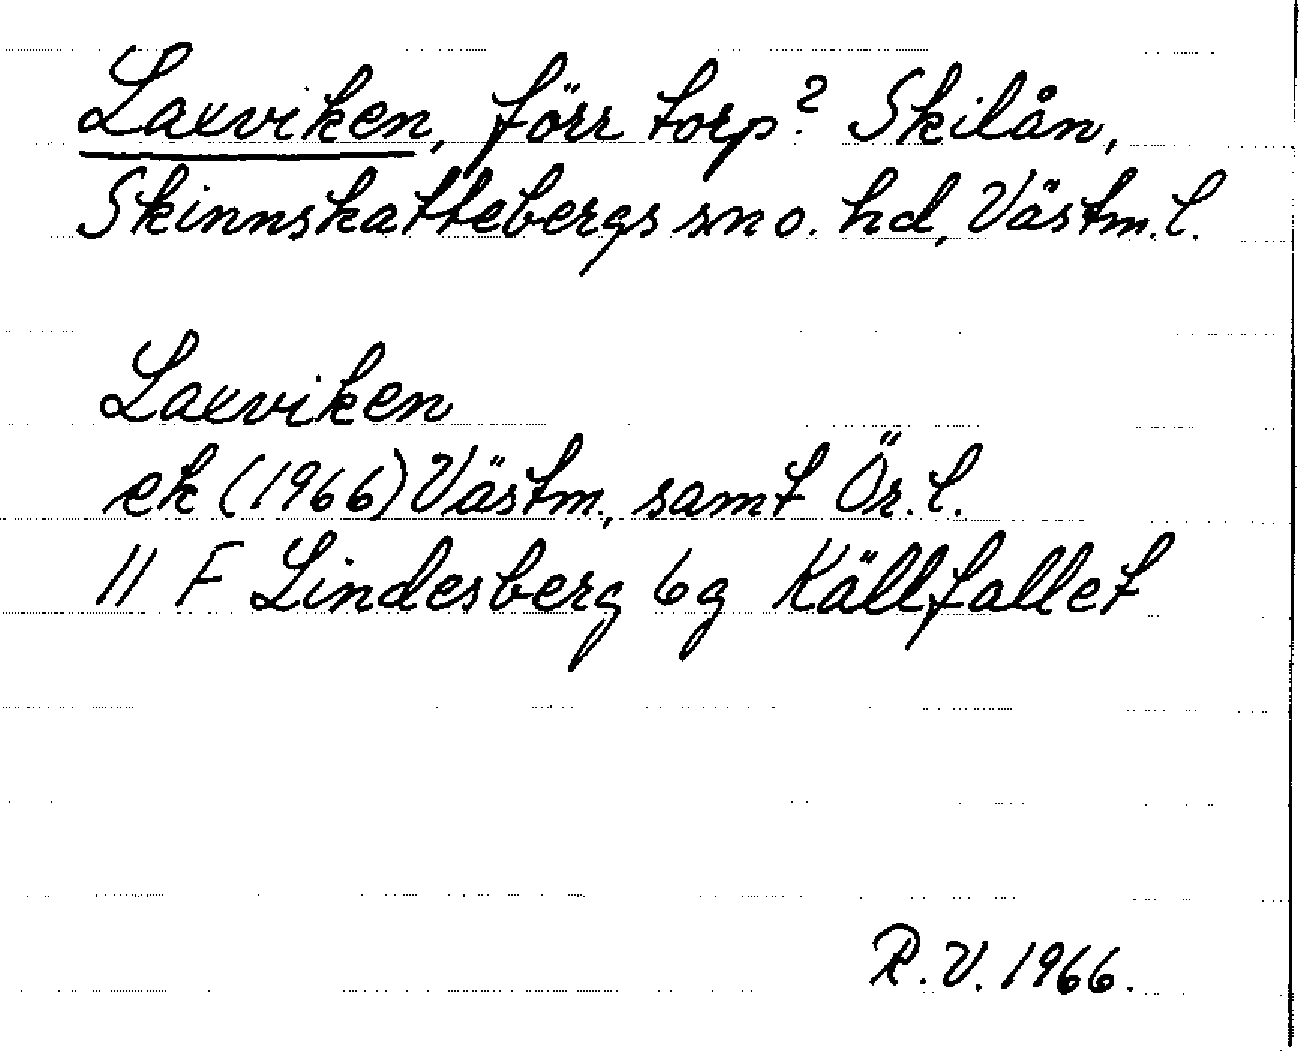 Laxviken, förr torp? Skilån,
Skinnskattebergs sn o. hd, Västm. l.
Laxviken
ek (1966) Västm., samt Ör. l.
11 F Lindesberg 6g Källfallet
R. V. 1966.